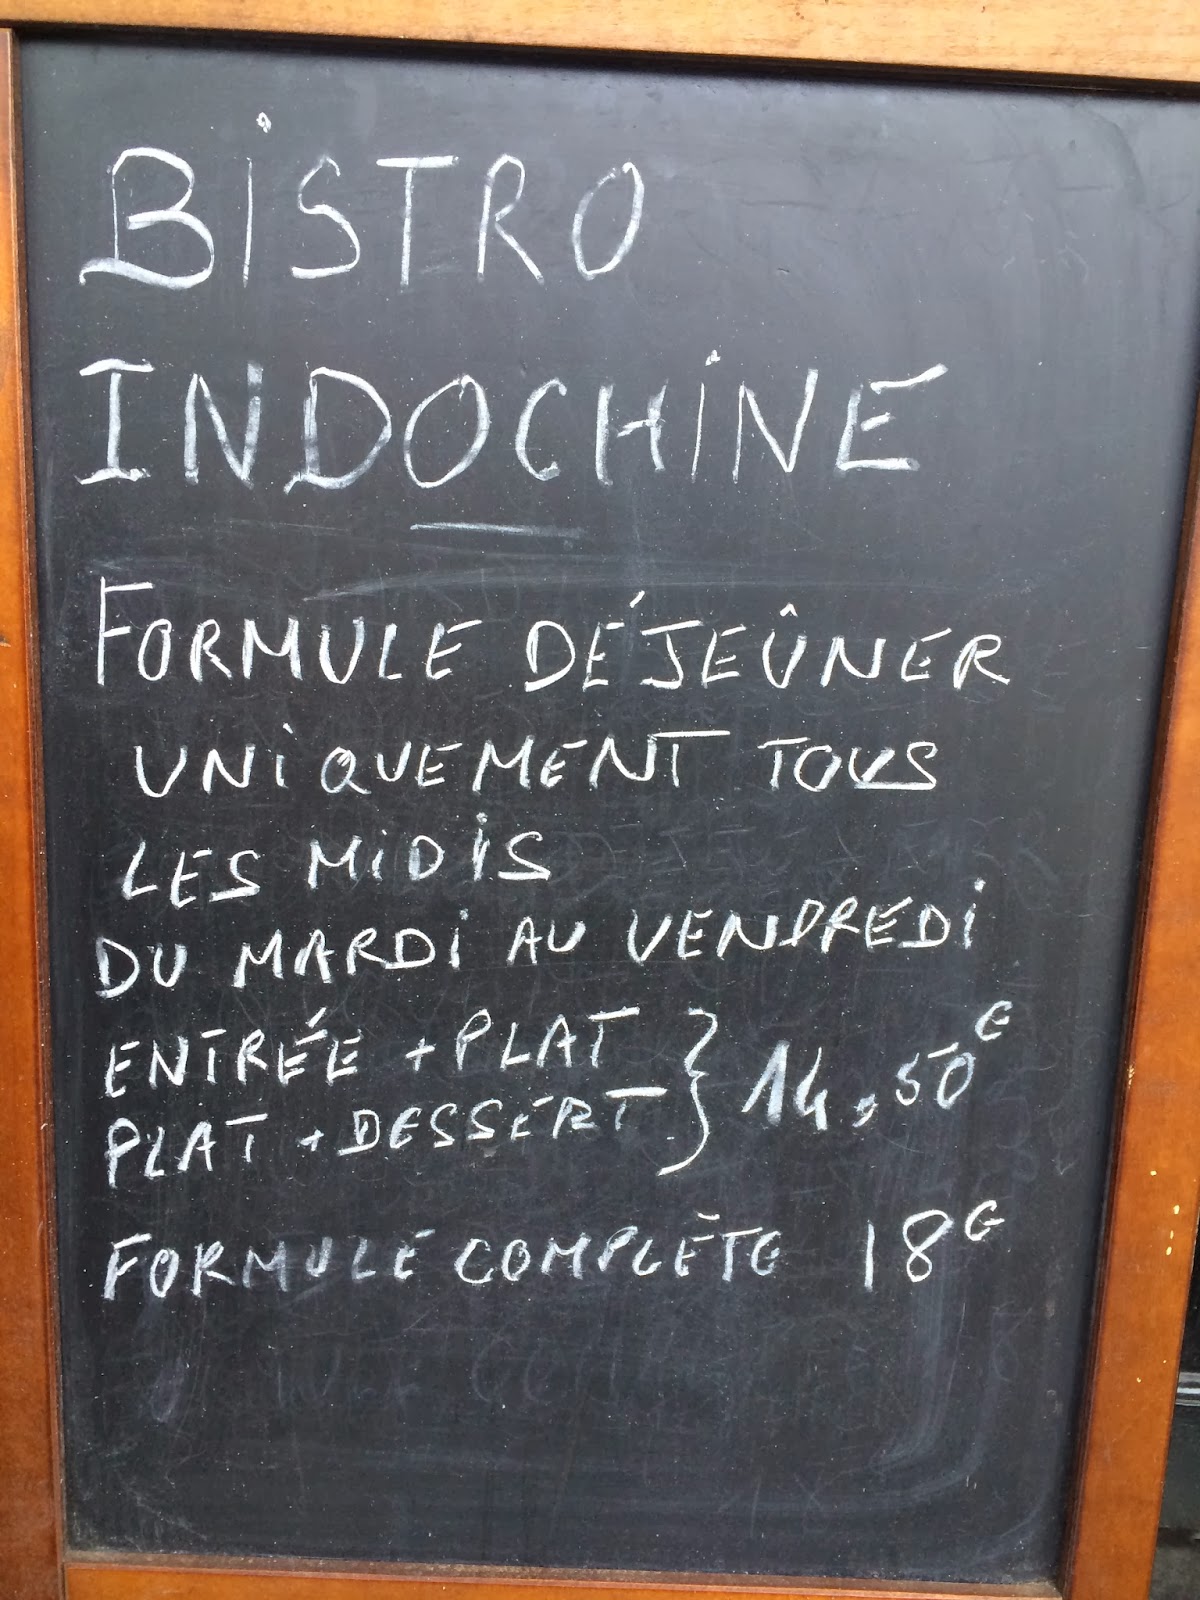 BISTRO
INDOCHINE
FORMULE DÉJEÛNER
UNIQUEMENT TOUS
LES MIDIS
DU MARDI AU VENDREDI
ENTRÉE + PLAT
PLAT + DESSERT } 14,50€
FORMULE COMPLÈTE 18€